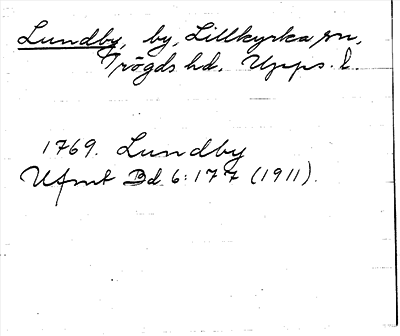 Lundby, by, Lillkyrka sn,
Trögds hd. Upps. l.
1769. Lundby
UFmt Bd 6:177 (1911).